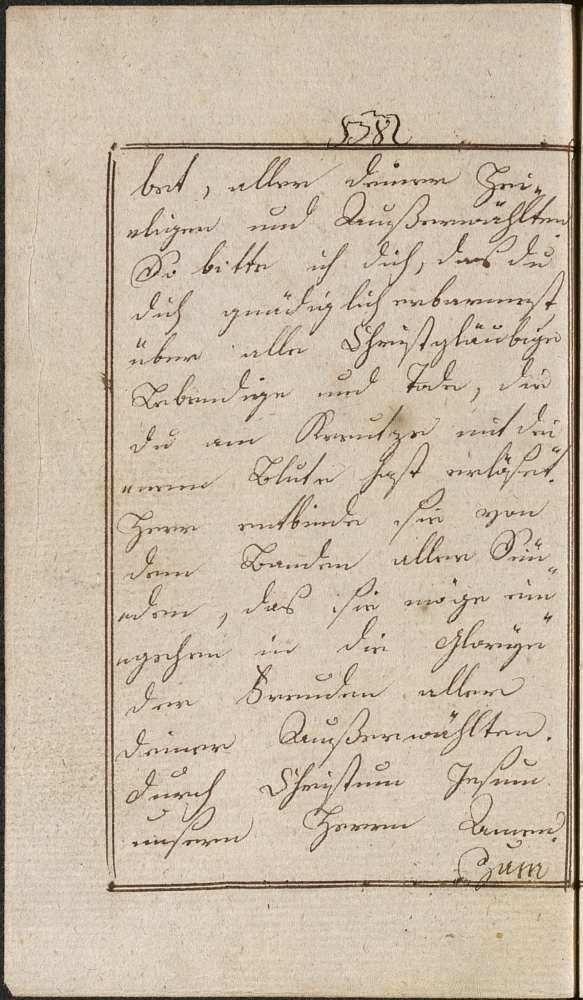 138
bet, aller deiner Hei„
„ligen und Außerwählten
So bitte ich dich, das du
dich gnädiglich erbarmest
über alle Christgläubige
Lebendige und Tode, die
du am Kreutze mit dei„
„nem Blute hast erlöset.
Herr entbinde sie von
dem Banden aller Sün„
„den, das sie möge ein„
„gehen in die Glorye
der Freuden aller
deiner Außerwählten.
durch Christum Jesum
unsern Herrn Amen.
Zum